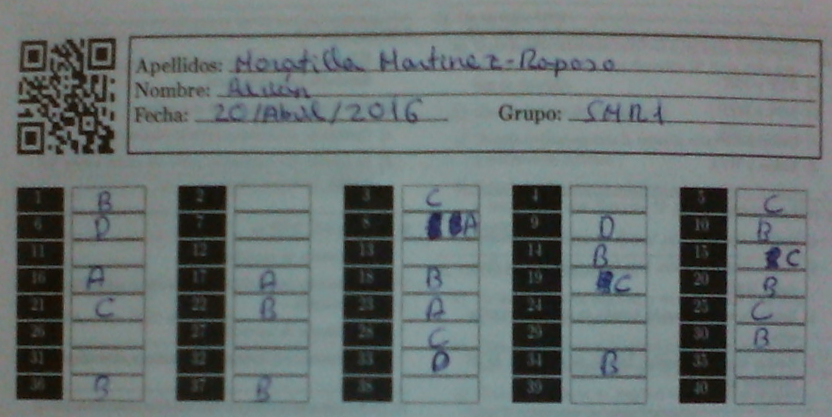 Apellidos: Moratilla Martinez-Raposo
Nombre:
Fecha: 20/Abril/2016 Grupo: SMR1
1 B 2 3 C 4 5 C
6 D 7 8 A 9 D 10 B
11 12 13 14 B 15 C
16 A 17 A 18 B 19 C 20 B
21 C 22 B 23 A 24 25 C
26 27 28 C 29 30 B
31 32 33 D 34 B 35
36 B 37 B 38 39 40